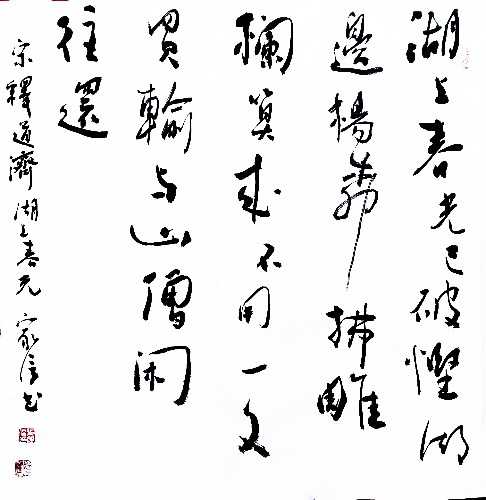 湖上春光已破慳湖
邊楊柳拂雕
欄算來不用一文
買輸与山僧閑
往還
宋釋道濟湖上春光 家信书